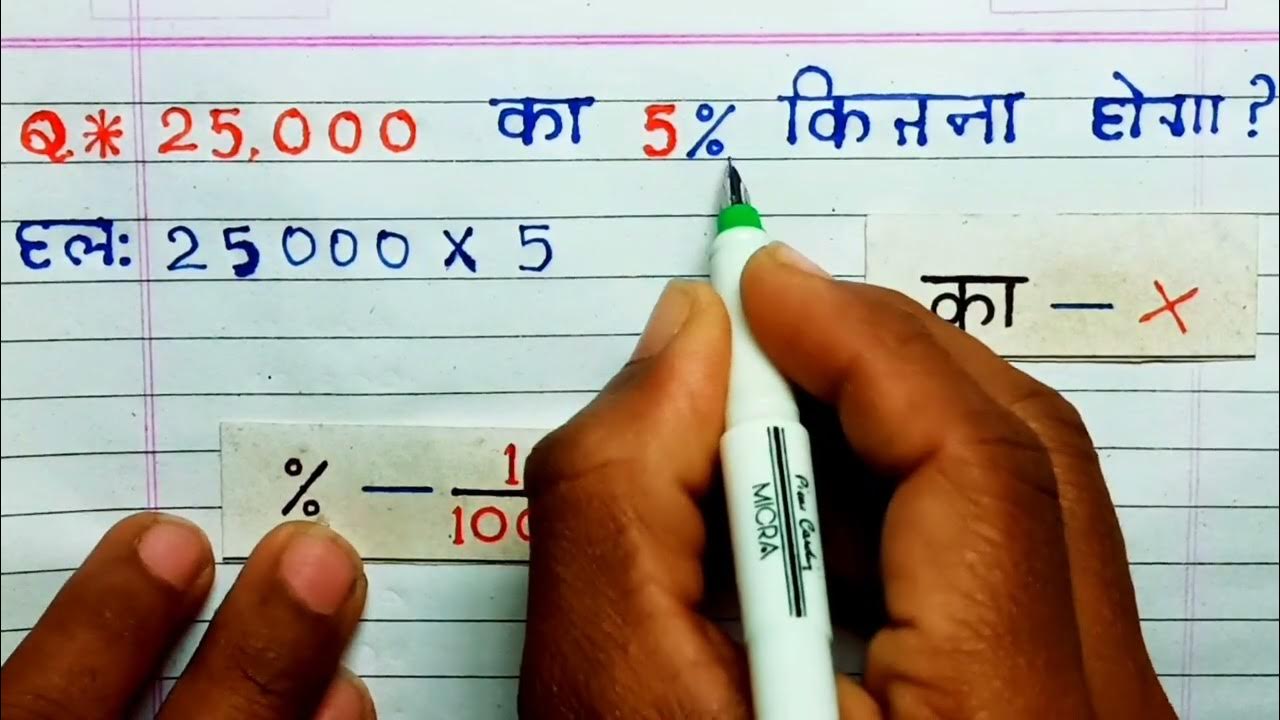 Q.* 25,000 का 5% कितना होगा?
हलः 25000 x 5
का – ×
% – 1/100
Pierre Cardin
MICRA